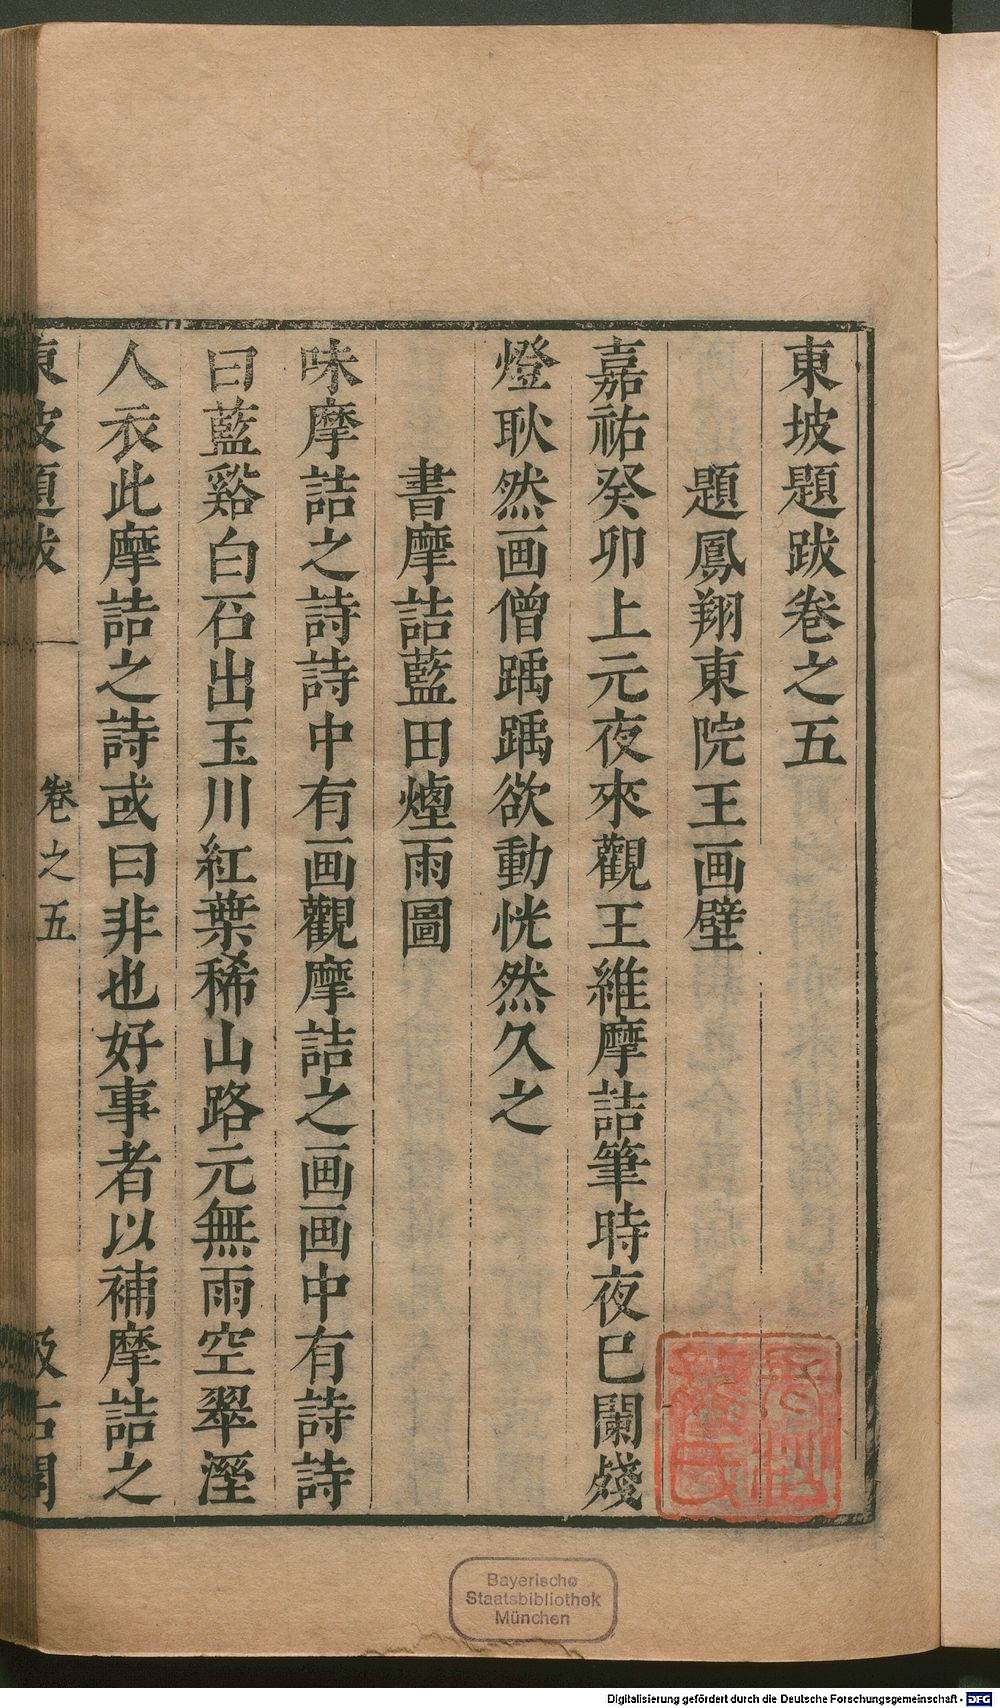 東坡題跋卷之五
題鳳翔東院王画壁
嘉祐癸卯上元夜來觀王維摩詰筆時夜已闌殘
燈耿然画僧踽踽欲動恍然久之
書摩詰藍田煙雨圖
味摩詰之詩詩中有画觀摩詰之画画中有詩詩
曰藍谿白石出玉川紅葉稀山路元無雨空翠溼
人衣此摩詰之詩或曰非也好事者以補摩詰之
東坡題跋 一 卷之五 汲古閣
Bayerische
Staatsbibliothek
München
Digitalisierung gefördert durch die Deutsche Forschungsgemeinschaft - DFG